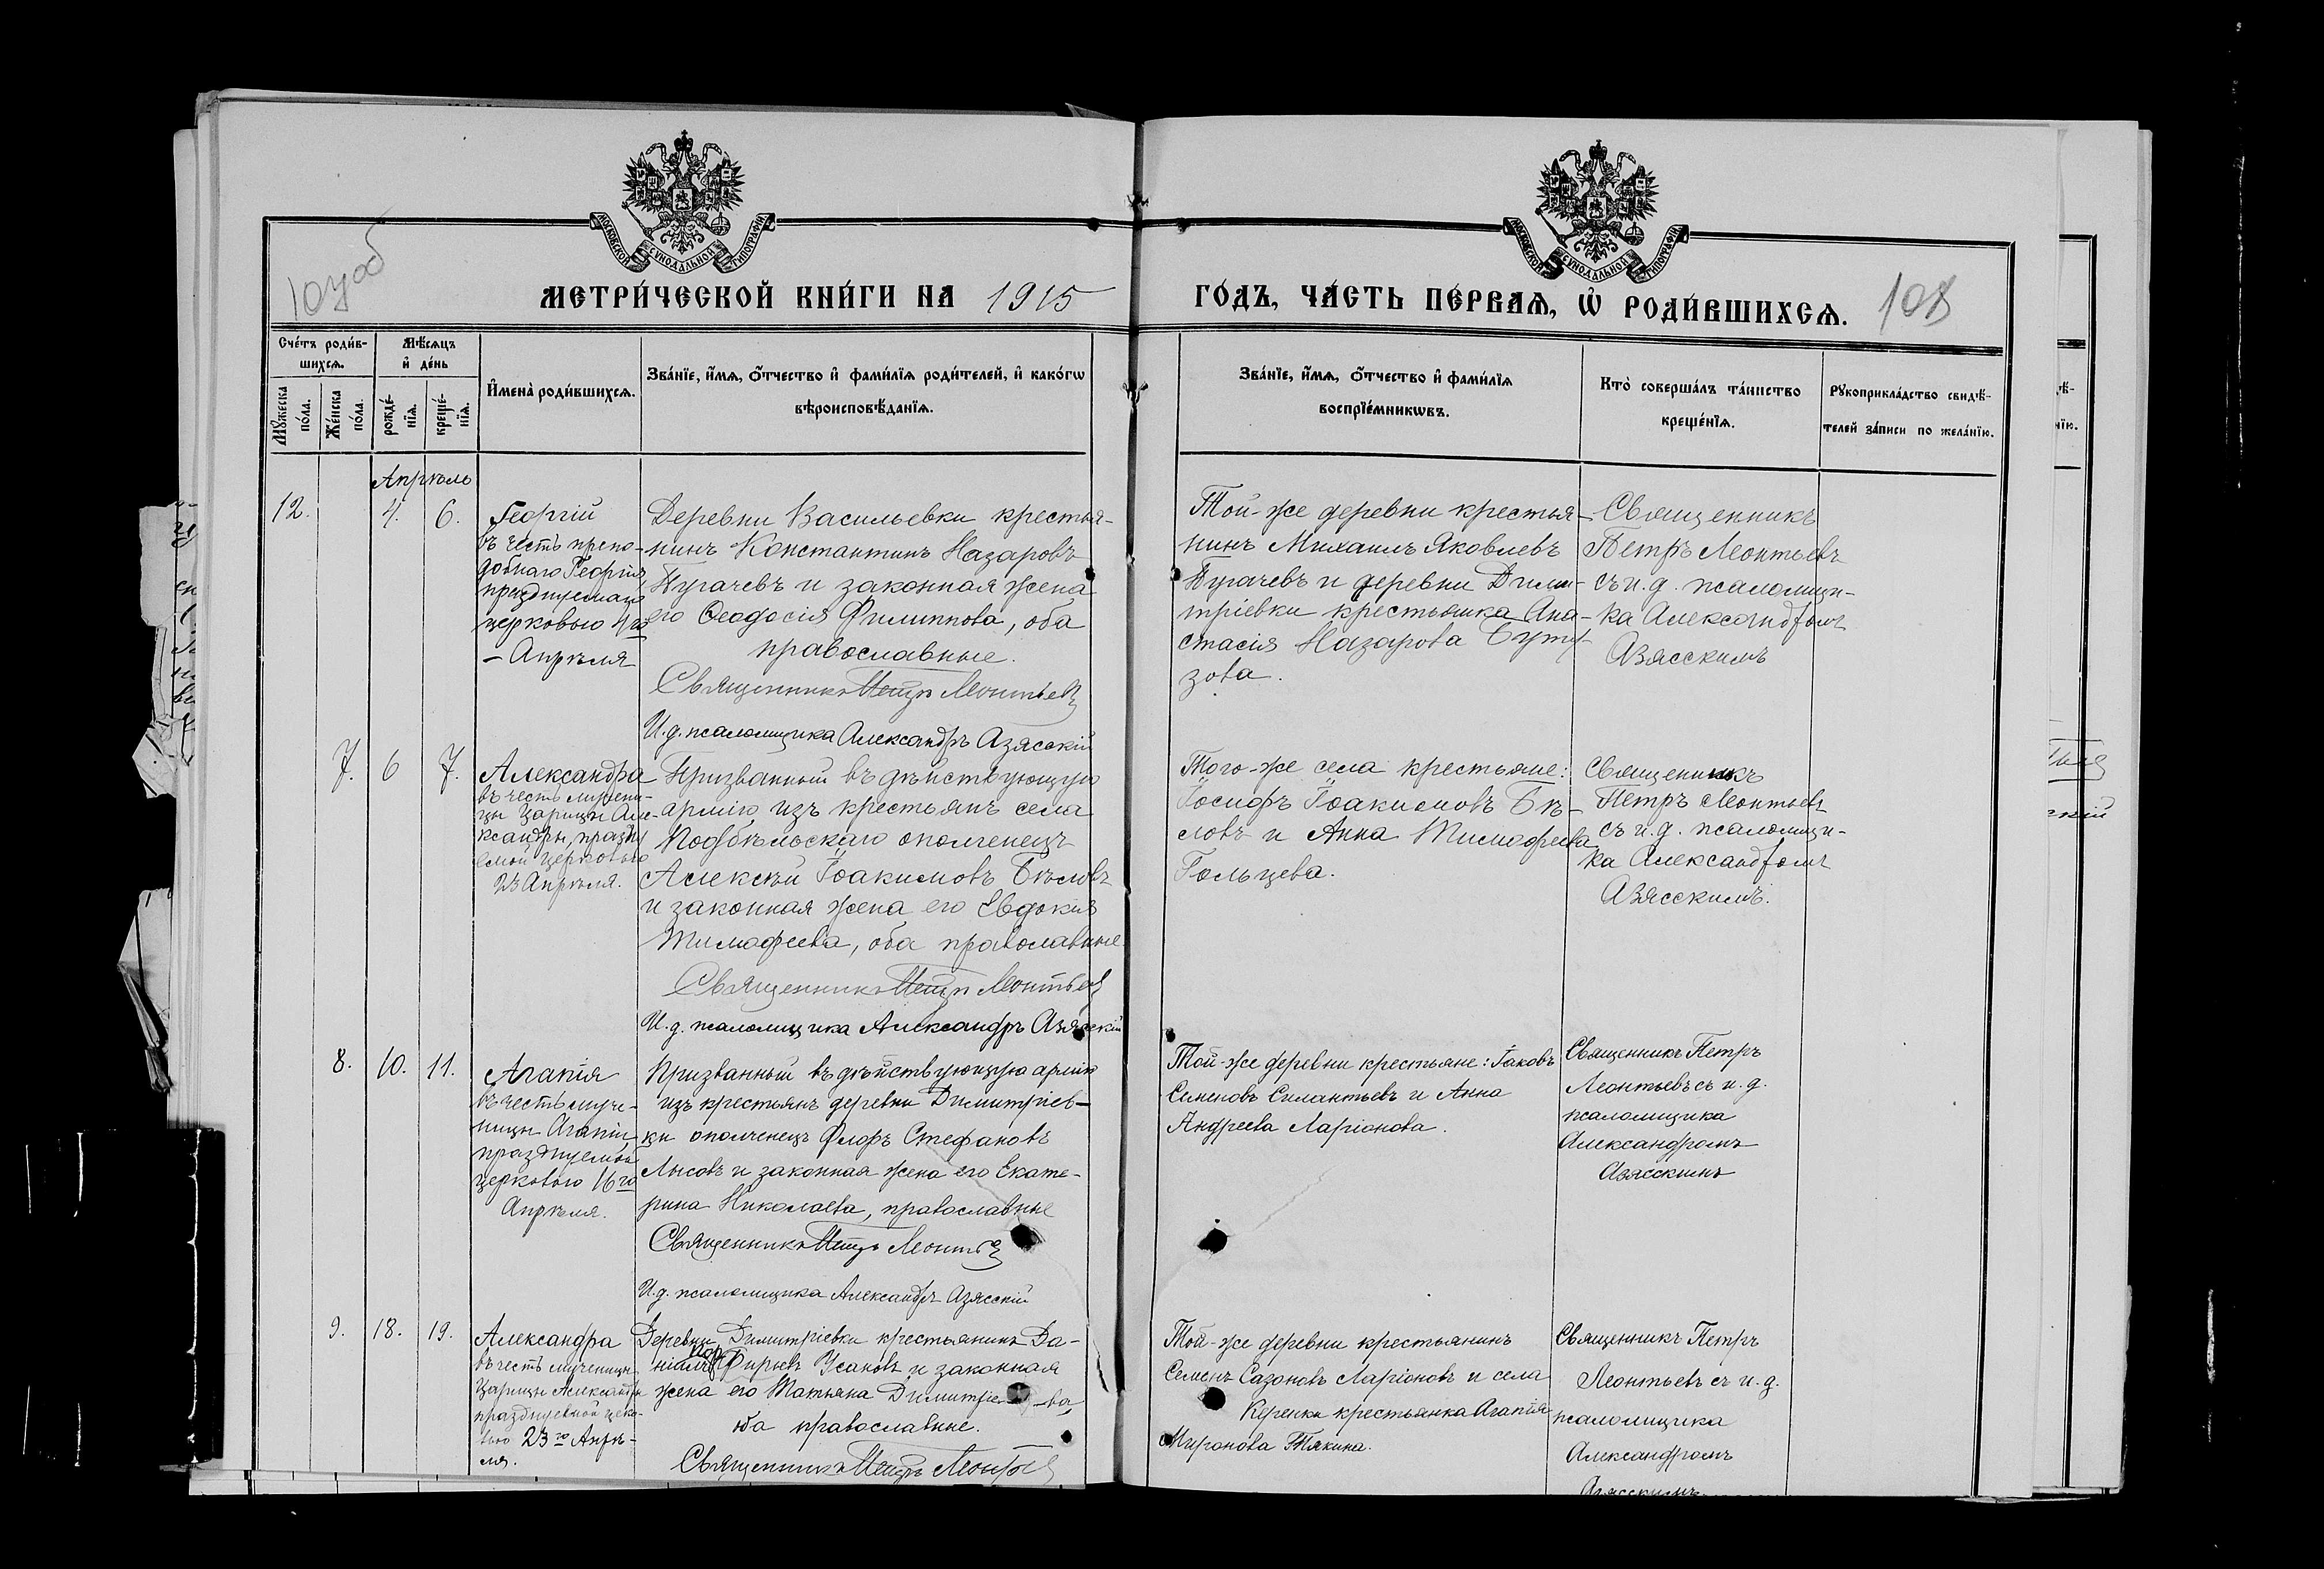 МОСКОВСКОЙ СѴНОДАЛЬНОЙ ТИПОГРАФІИ
МОСКОВСКОЙ СѴНОДАЛЬНОЙ ТИПОГРАФІИ
МЕТРИ́ЧЕСКОЙ КНИ́ГИ НА 1915
ГО́ДЪ, ЧА́СТЬ ПЕ́РВАѦ, Ѽ РОДИ́ВШИХСѦ.
108
Сче́тъ роди́в-
шихсѧ.
Мꙋжеска
по́ла.
Же́нска
по́ла.
Мѣ́сѧцъ
и҆ де́нь
рожде́-
нїѧ.
креще́-
нїѧ.
И҆мена̀ роди́вшихсѧ.
Зва́нїе, и҆́мѧ, ѻ҆́тчество и҆ фами́лїѧ роди́телей, и҆ како́гѡ
вѣроисповѣ́данїѧ.
Зва́нїе, и҆́мѧ, ѻ҆́тчество и҆ фами́лїѧ
воспрїе́мникѡвъ.
Кто̀ соверша́лъ та́инство
креще́нїѧ.
Рꙋкоприкла́дство свидѣ́-
телей за́писи по жела́нїю.
Апрѣль
12.
4.
6.
Георгій
въ честь препо-
добнаго Георгія,
празднуемаго
церковью 4го
- Апрѣля
Деревни Васильевки крестья-
нинъ Константинъ Назаровъ
Пугачевъ и законная жена
его Ѳеодосія Филиппова, оба
православные.
Священникъ Петръ Леонтьевъ
И.д. псаломщика Александръ Азясскій
Той-же деревни крестья-
нинъ Михаилъ Яковлевъ
Пугачевъ и деревни Дими-
тріевки крестьянка Ана-
стасія Назарова Буту-
зова.
Священникъ
Петръ Леонтьевъ
съ и.д. псаломщи-
ка Александромъ
Азясскимъ
7.
6
7.
Александра
въ честь мучени-
цы Царицы Але-
ксандры, празну
емой церковью
23 Апрѣля.
Призванный въ дѣйствующую
армію изъ крестьянъ села
Подбѣльскаго ополченецъ
Алексѣй Іоакимовъ Бѣловъ
и законная жена его Евдокія
Тимофеева, оба православные
Священникъ Петръ Леонтьевъ
И.д. псаломщика Александръ Азясскій
Того-же села крестьяне:
Іосифъ Іоакимовъ Бѣ-
ловъ и Анна Тимофеева
Гольцева.
Священникъ
Петръ Леонтьевъ
съ и.д. псаломщи-
ка Александромъ
Азясскимъ.
8.
10.
11.
Агапія
въ честь муче-
ницы Агапіи,
празднуемой
церковью 16го
Апрѣля.
Призванный въ дѣйствующую армію
изъ крестьянъ деревни Димитріев-
ки ополченецъ Флоръ Стефановъ
Лысовъ и законная жена его Екате-
рина Николаева, православные
Священникъ Петръ Леонтьевъ
И.д. псаломщика Александръ Азясскій
Той-же деревни крестьяне: Іаковъ
Семеновъ Силантьевъ и Анна
Андреева Ларіонова.
Священникъ Петръ
Леонтьевъ съ и.д.
псаломщика
Александромъ
Азясскимъ
9.
18.
19.
Александра
въ честь мученицы
Царицы Александры
празднуемой церко-
вью 23го Апрѣ-
ля.
Деревни Димитріевки крестьянинъ Да-
ніилъ Порфирьевъ Усановъ и законная
жена его Татьяна Димитріева,
оба православные.
Священникъ Петръ Леонтьевъ
Той-же деревни крестьянинъ
Семенъ Сазоновъ Ларіоновъ и села
Керенки крестьянка Агапія
Миронова Тякина.
Священникъ Петръ
Леонтьевъ съ и.д.
псаломщика
Александромъ
Азясскимъ